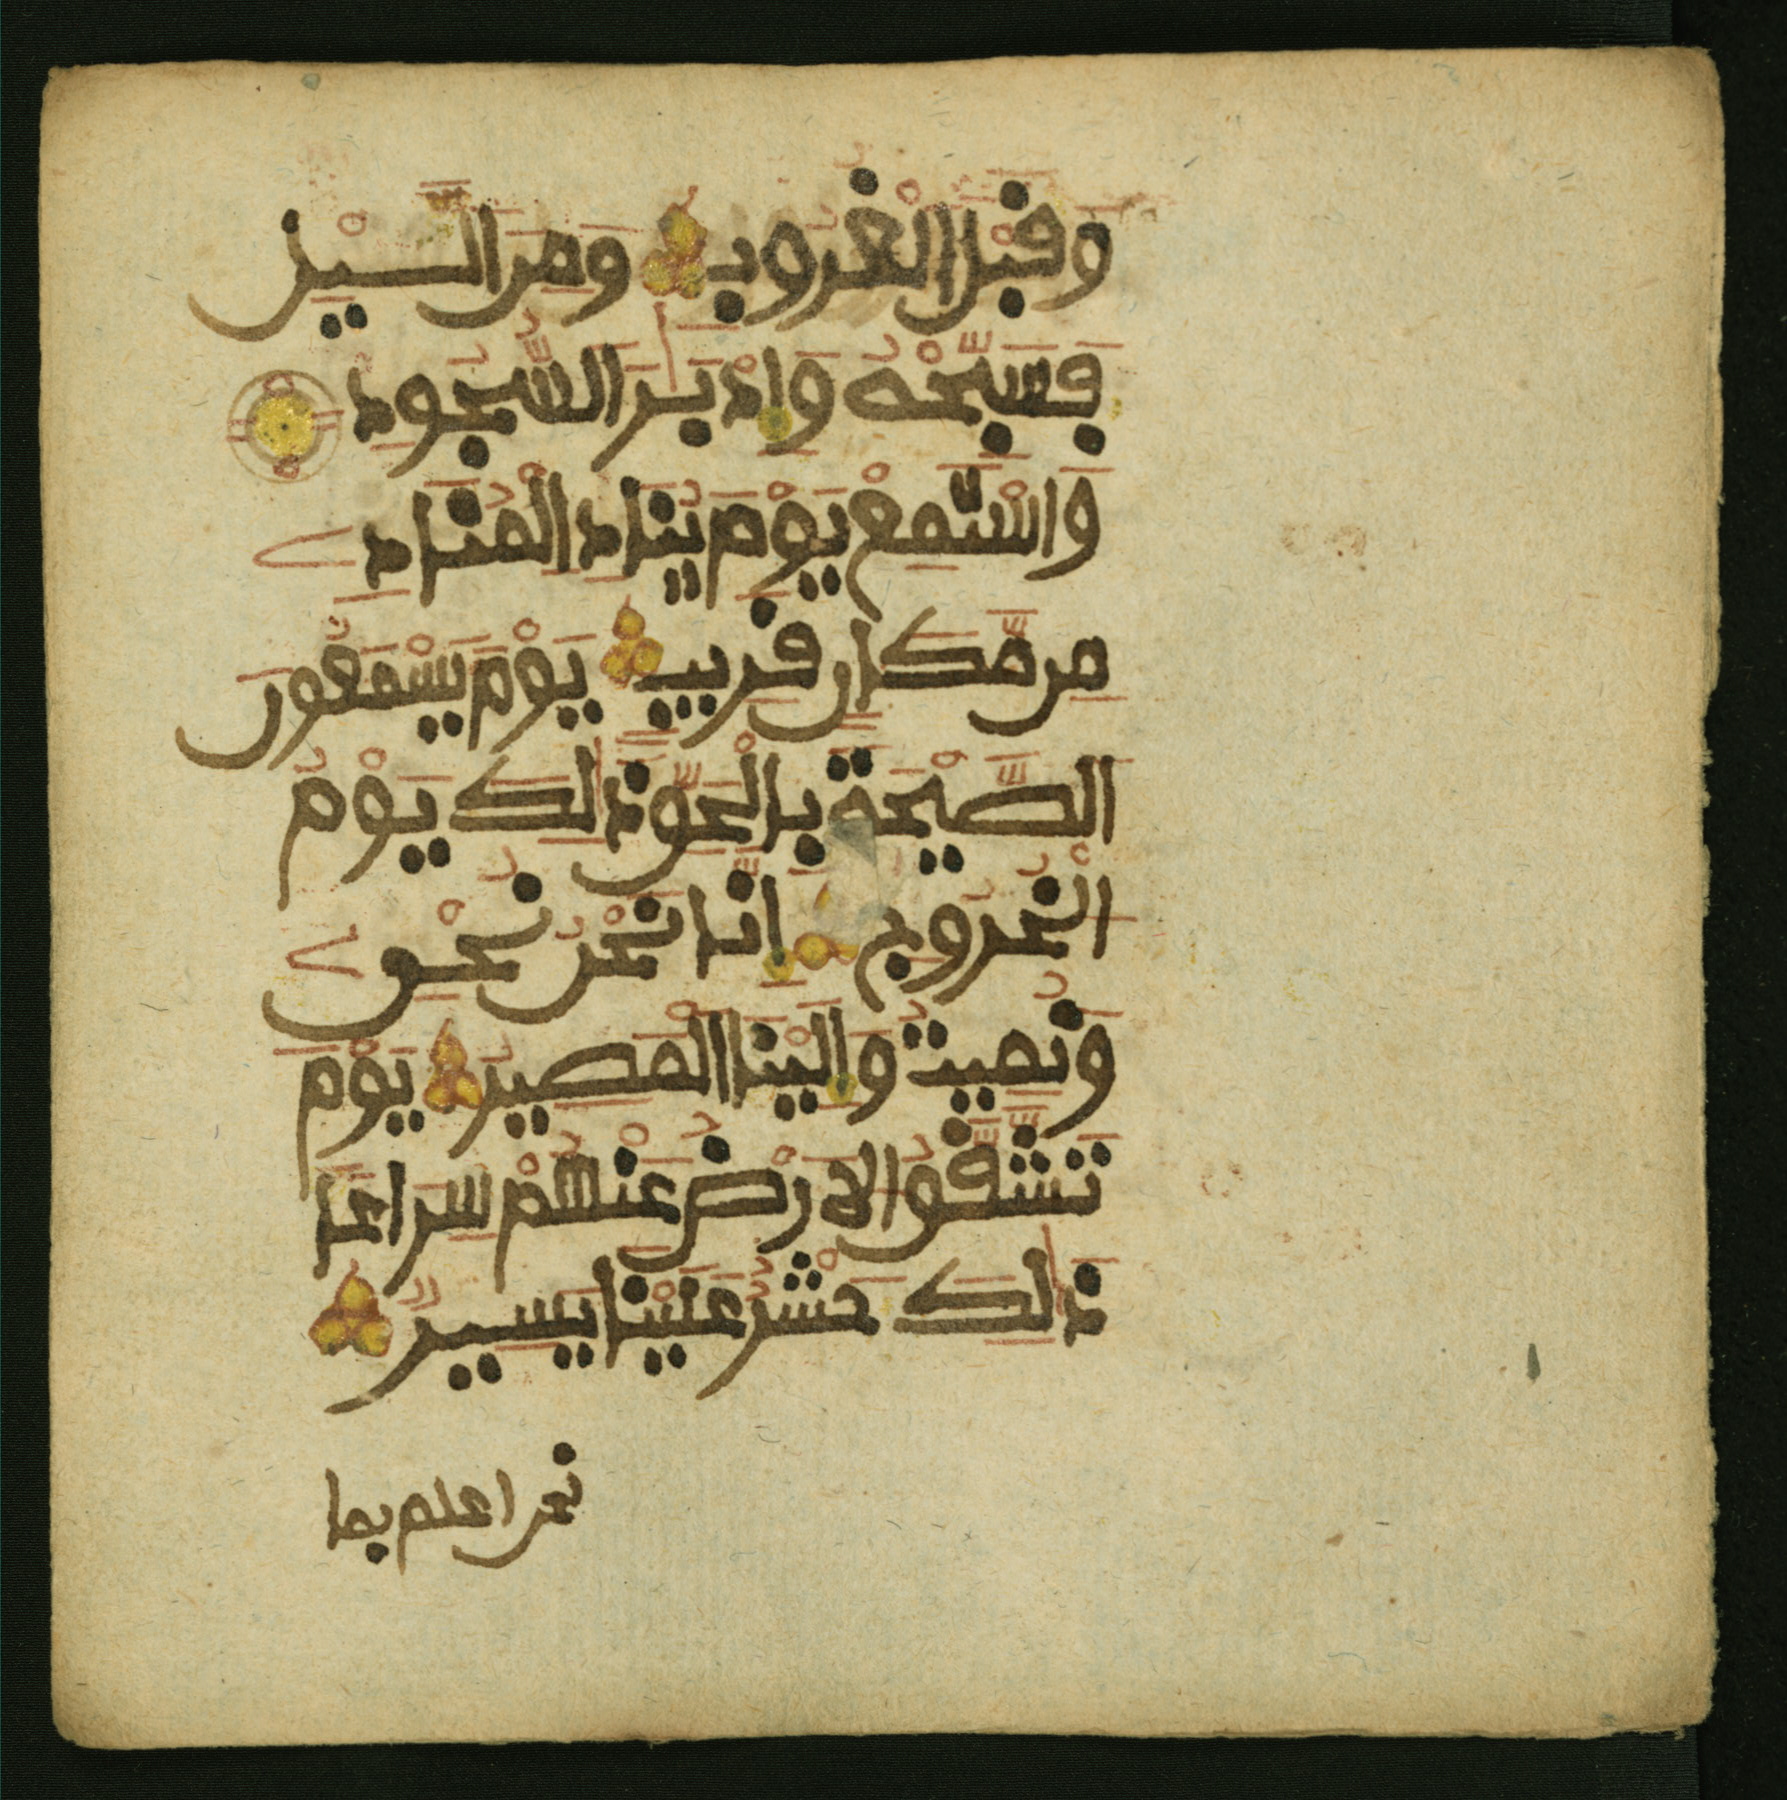 وقبل الغروب ومن اليل
فسبحه وإدبر السجود
واستمع يوم يناد المناد
من مكان قريب يوم يسمعون
الصيحة بالحق ذلك يوم
الخروج إنا نحن نحي
ونميت وإلينا المصير يوم
تشقق الارض عنهم سراعا
ذلك حشر علينا يسير
نحن اعلم بما